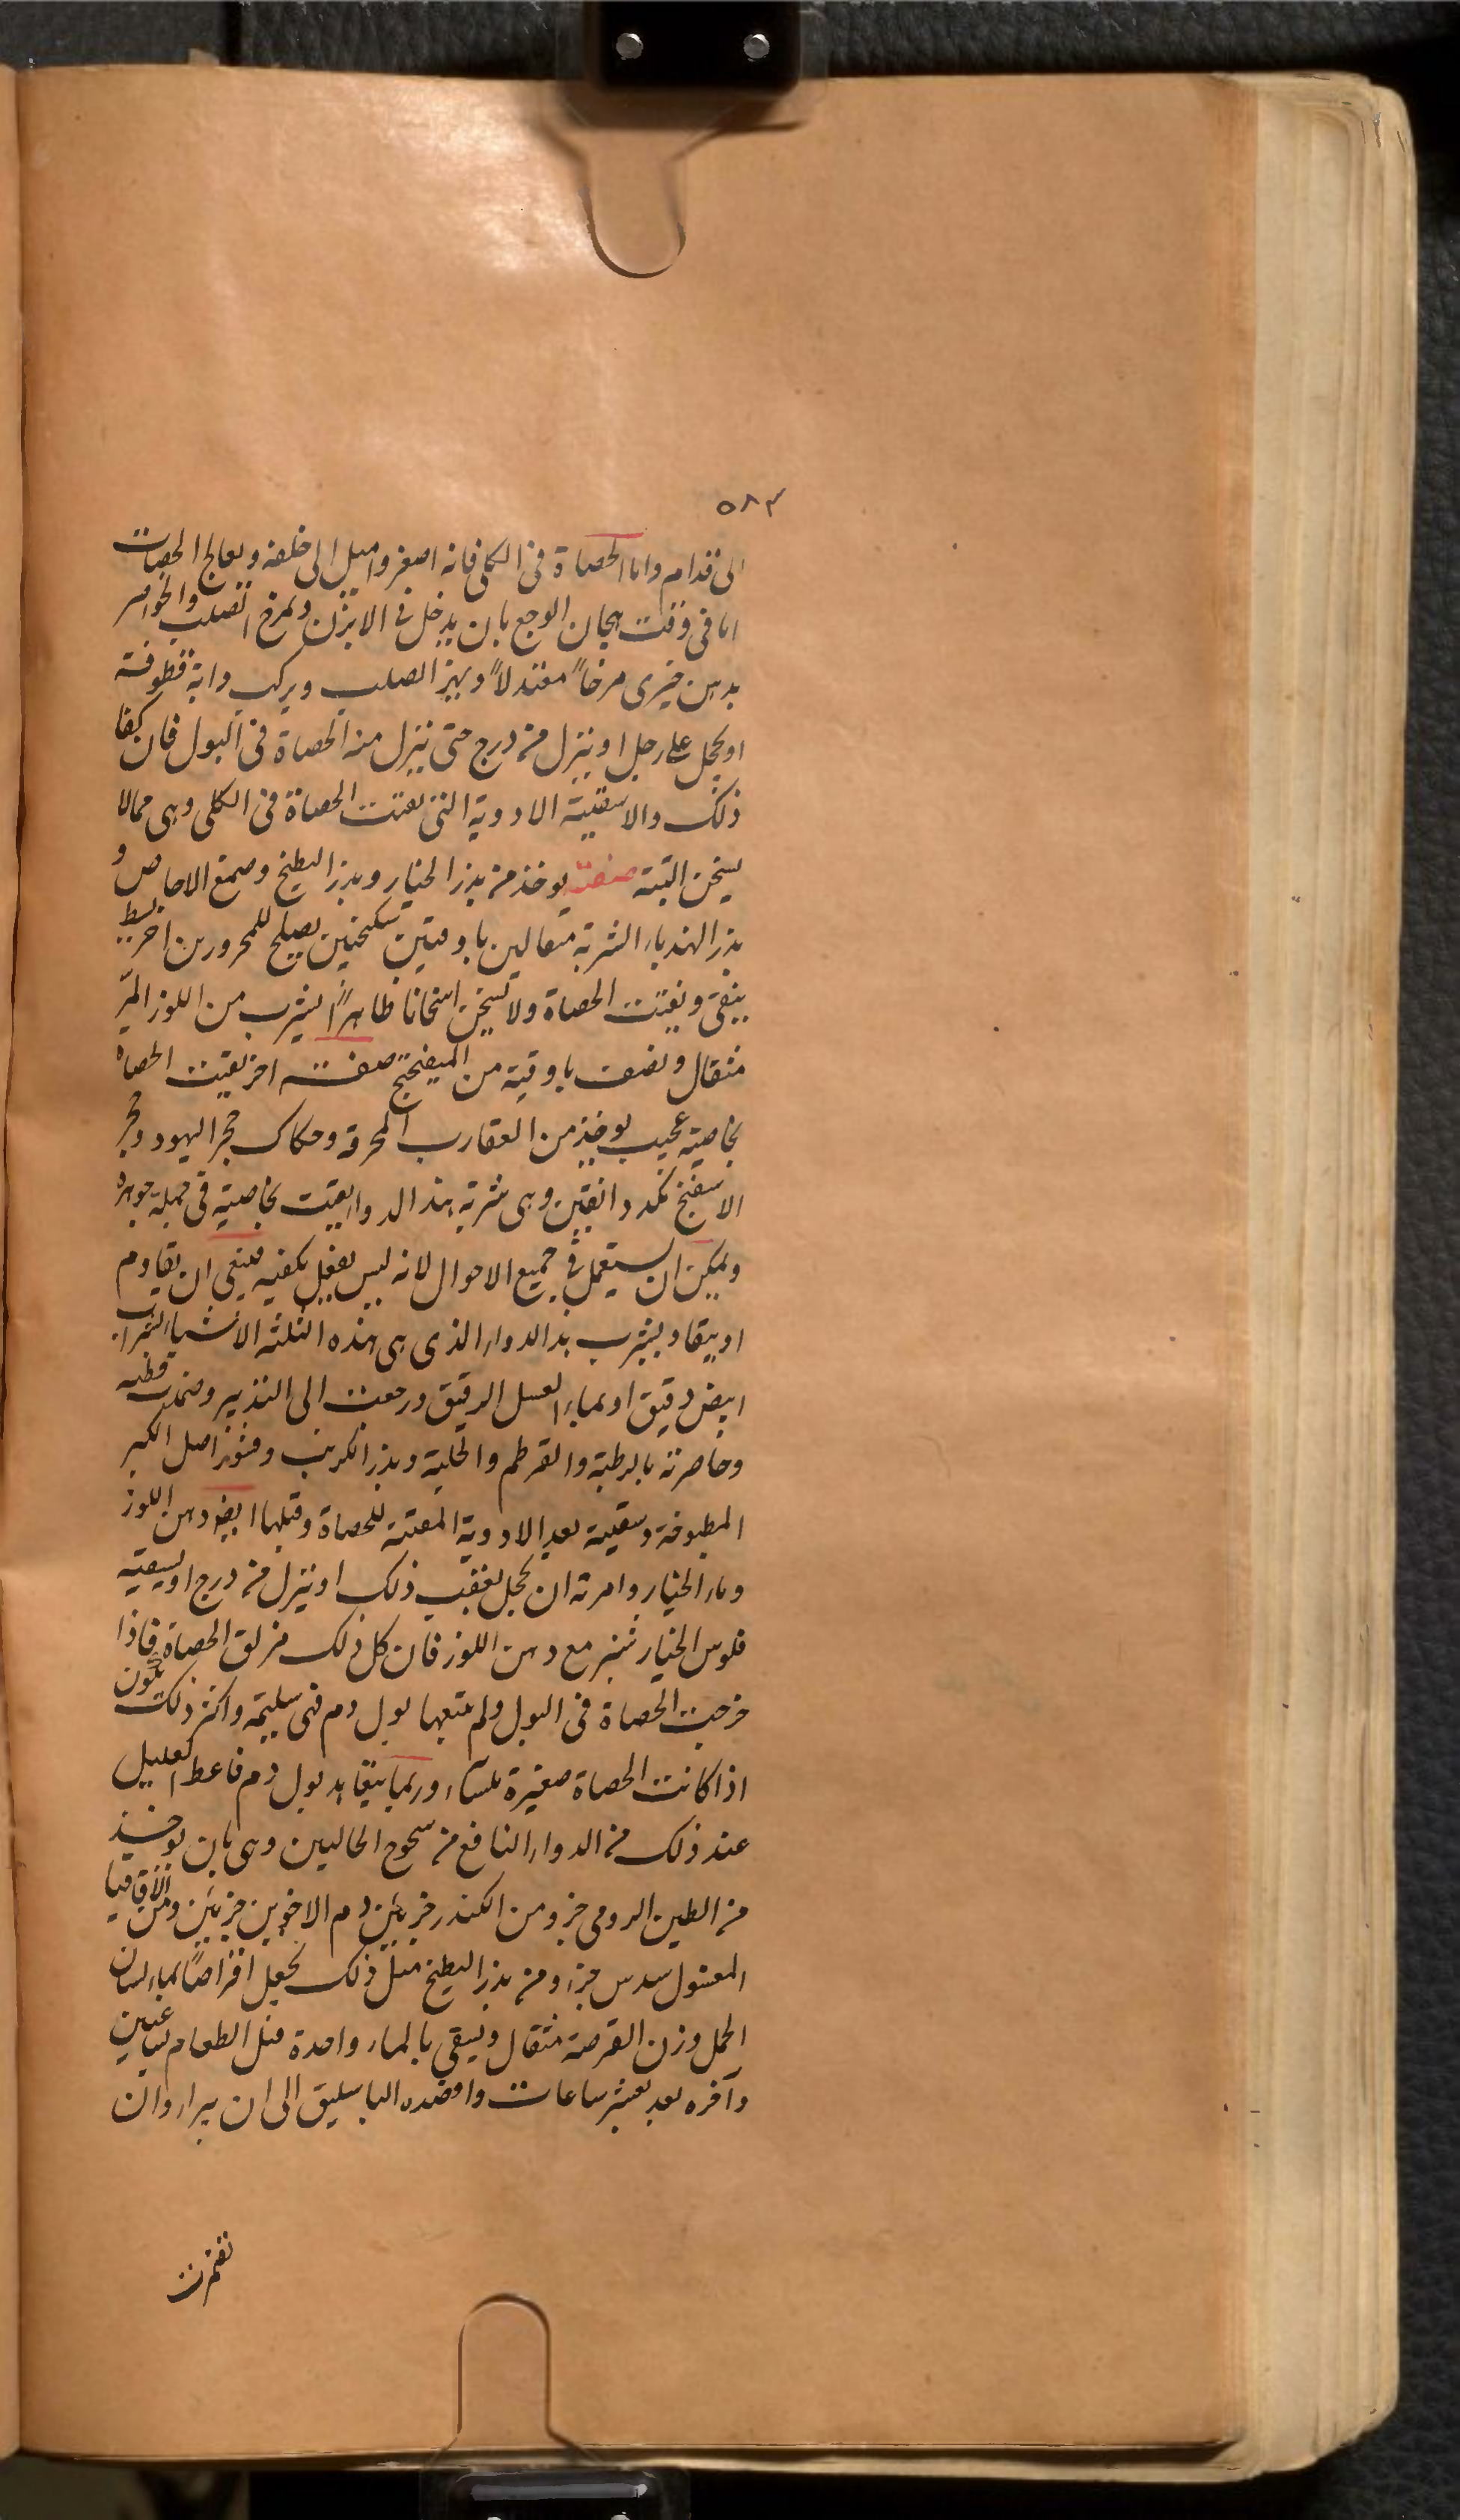 ٥٨٣
الى قدام واما الحصاة فى الكلى فانه اصغر واميل الى خلفه ويعالج الحصات
اما فى وقت هيجان الوجع بان يدخل فى الابزن ويمرخ الصلب والخواصر
بدهن خيرى مرخاً معتدلاً ويهز الصلب ويركب دابة قطوفة
او يحجل على رجل او ينزل من درج حتى ينزل منه الحصاة فى البول فان كفا
ذلك والا سقيته الادوية التى تفتت الحصاة فى الكلى وهى ممالا
يسخن البتة صفته يوخذ من بذر الخيار وبذر البطيخ وصمغ الاجاص و
بذر الهندباء الشربة مثقالين باوقيتين سكنجبين يصلح للمحرورين اخر بسيط
ينقى ويفتت الحصاة ولا يسخن اسخانا ظاهراً يشرب من اللوز المر
مثقال ونصف باوقية من الميفختج صفة اخر يفتت الحصاة
بخاصية عجيب يوخذ من العقارب المحرقة وحكاك حجر اليهود وحجر
الاسفنج نمد دانقين وهى شربة هذا الدوا يفتت بخاصية فى جملة جوهره
ويمكن ان يستعمل فى جميع الاحوال لانه ليس يفعل بكيفيه فينبغى ان يقاوم
او يبقا ويشرب هذا الدواء الذى هى هذه الثلثه الاشياء بشراب
ابيض رقيق او بماء العسل الرقيق ورجعت الى التدبير وضمدت قطنه
وخاصرته بالرطبة والقرطم والحلبة وبذر الكرنب وقشور اصل الكبر
المطبوخة وسقيته بعد الادوية المفتتة للحصاة وقبلها ايضا دهن اللوز
وماء الخيار وامرته ان يحجل بعقب ذلك او ينزل من درج او يسقيه
فلوس الخيار شنبر مع دهن اللوز فان كل ذلك مزلق الحصاة فاذا
خرجت الحصاة فى البول ولم يتبعها بول دم فهى سليمة واكثر ذلك يكون
اذا كانت الحصاة صغيرة ملساء وربما يبقا به بول دم فاعط العليل
عند ذلك من الدواء النافع من سحوج الحالبين وهى بان يوخذ
من الطين الرومى جزو ومن الكندر جزئين دم الاخوين جزئين ومن الاقاقيا
المغسول سدس جزء ومن بذر البطيخ مثل ذلك يجعل اقراصاً بماء لسان
الحمل وزن القرصة مثقال ويسقى بالماء واحدة قبل الطعام بساعتين
وآخره بعد بعشر ساعات وافصده الباسليق الى ان يبرا وان